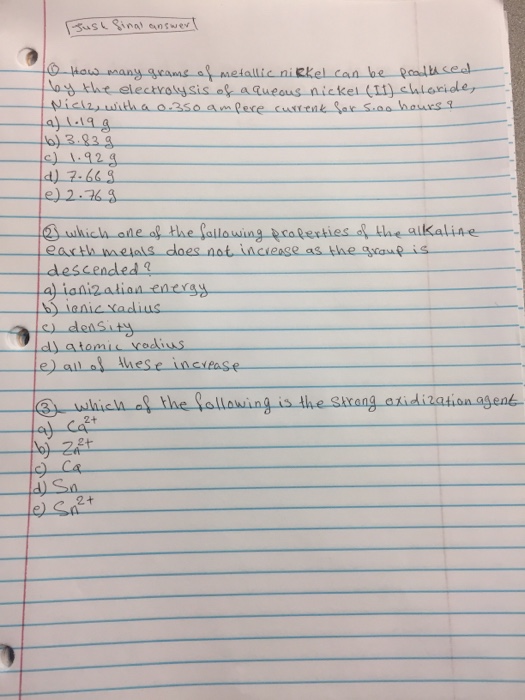 Just final answer
① How many grams of metallic nickel can be produced
by the electrolysis of aqueous nickel (II) chloride,
Nicl2, with a 0.350 ampere current for 5.00 hours?
a) 1.19 g
b) 3.83 g
c) 1.92 g
d) 7.66 g
e) 2.76 g
② which one of the following properties of the alkaline
earth metals does not increase as the group is
descended?
a) ionization energy
b) ionic radius
c) density
d) atomic radius
e) all of these increase
③ which of the following is the strong oxidization agent
a) Ca2+
b) Zn2+
c) Ca
d) Sn
e) Sn2+